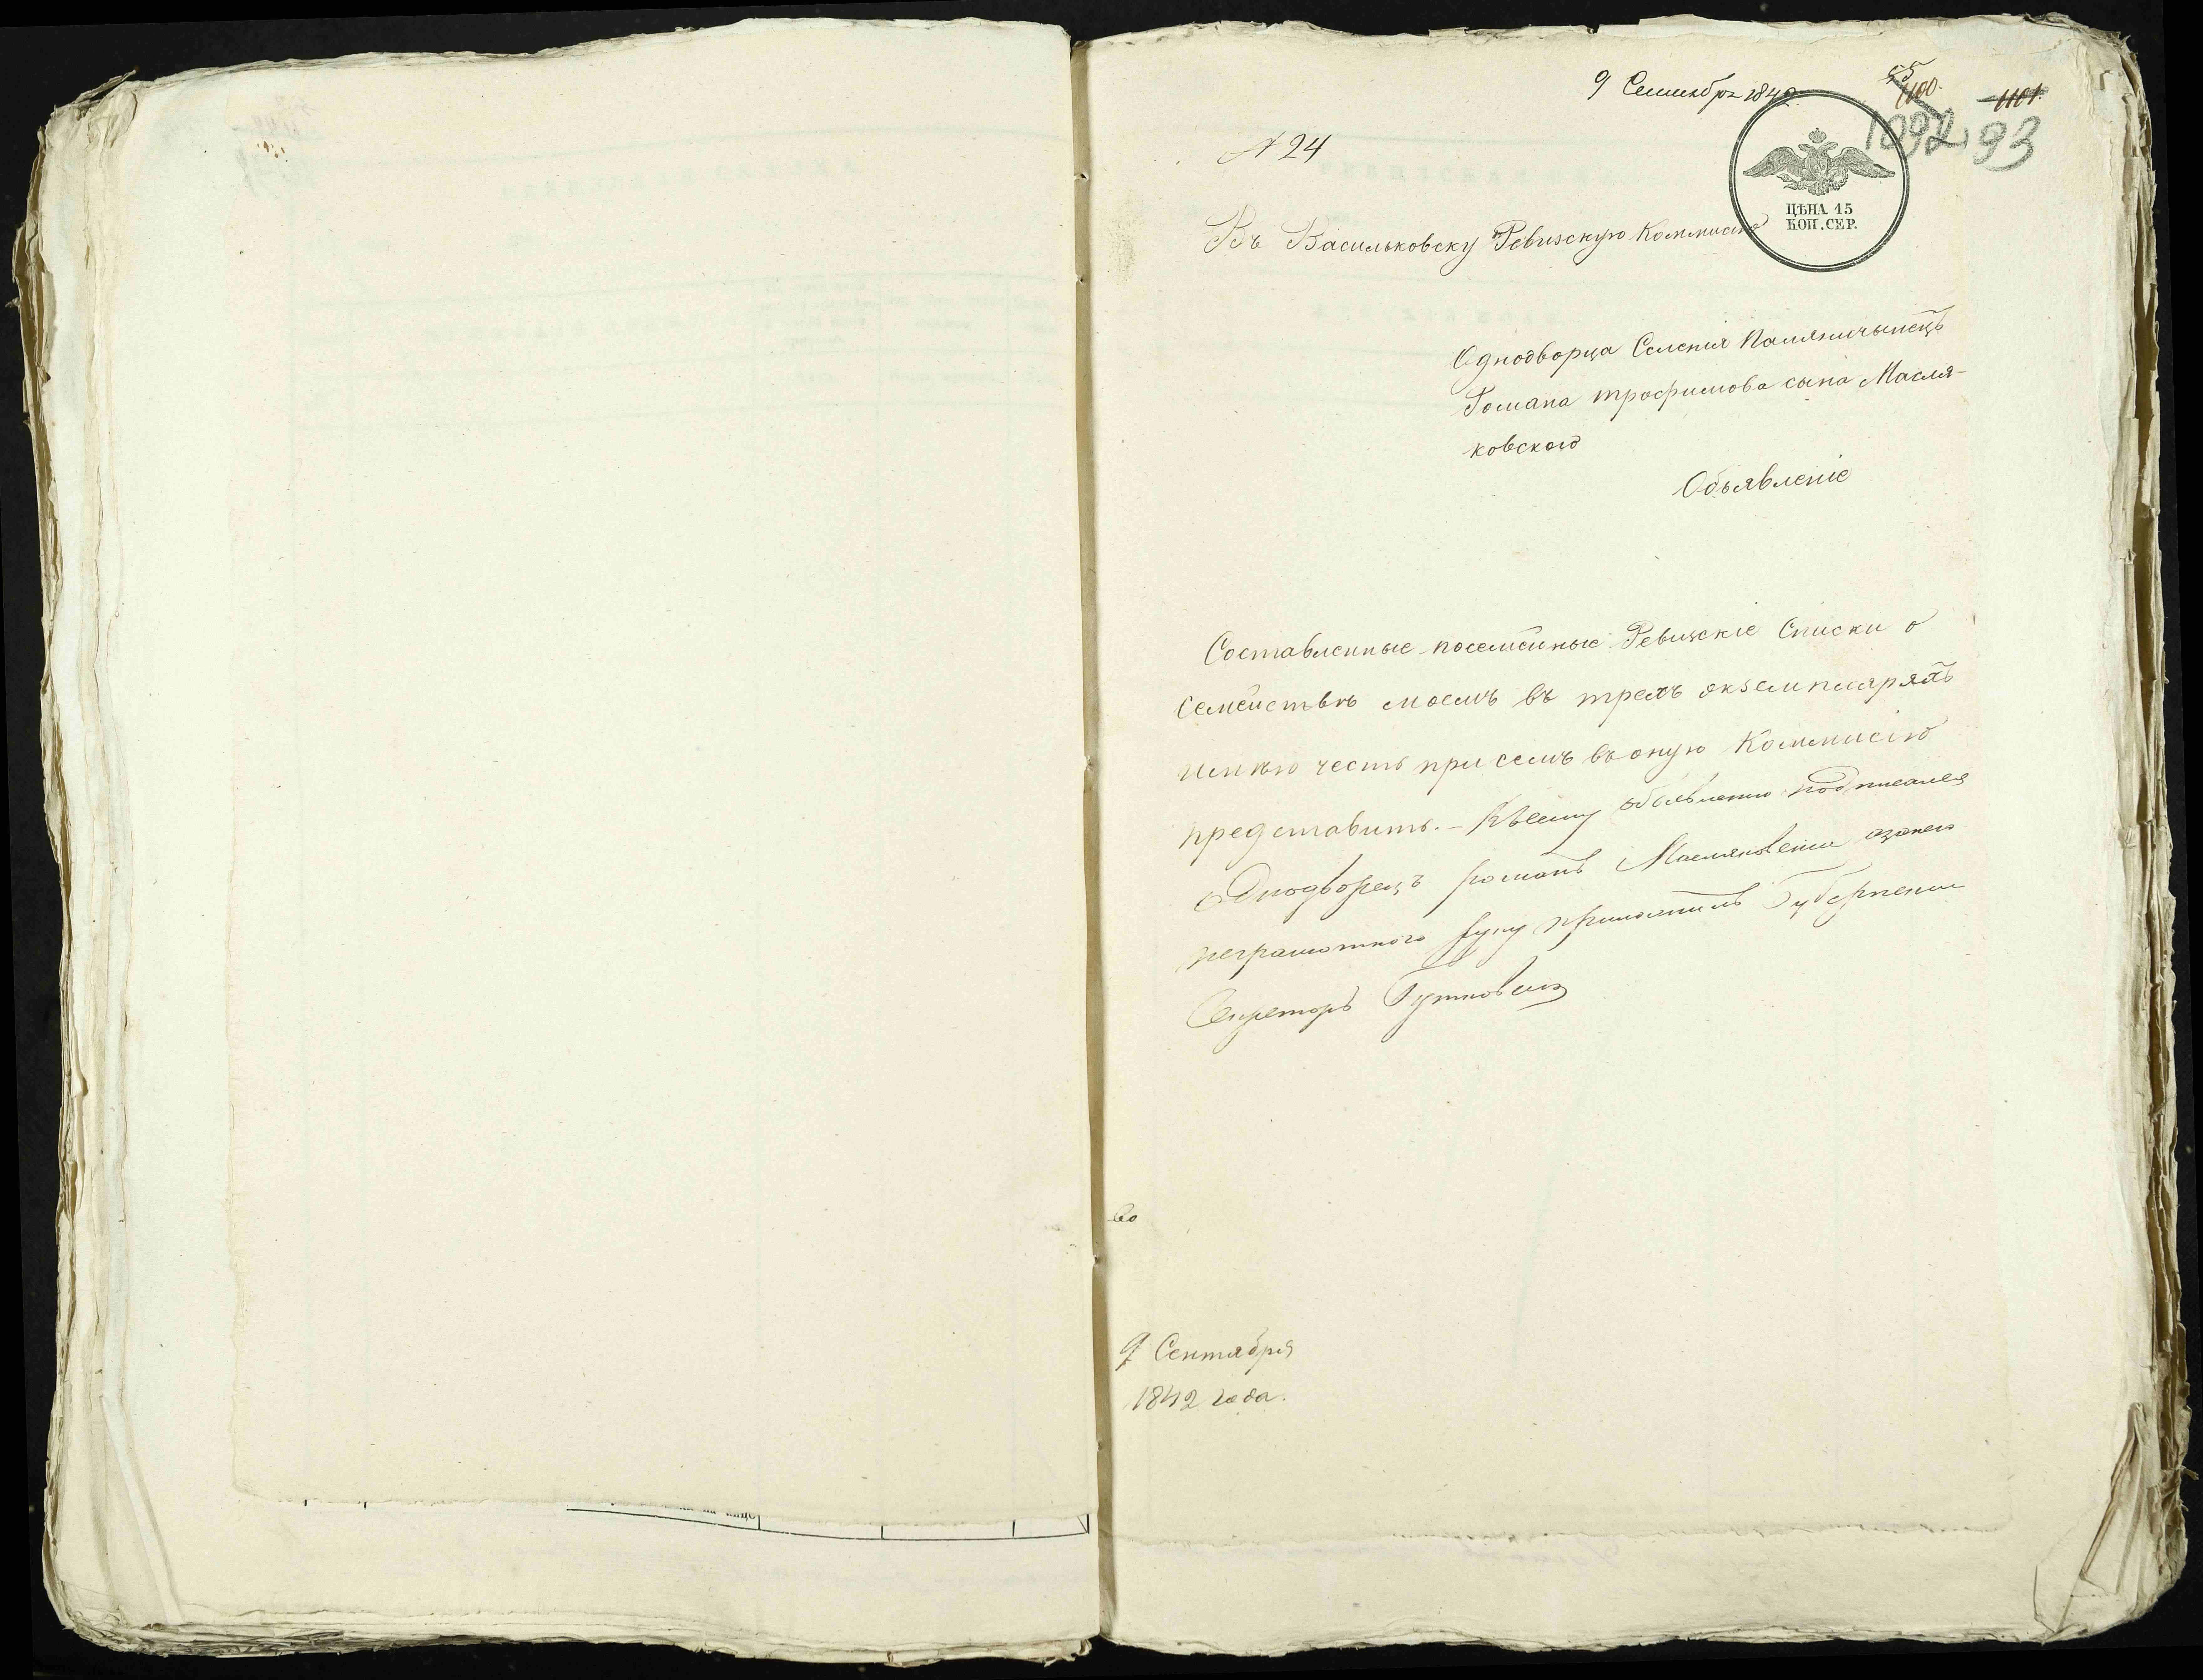 9 Сентября 1842.
55
1100.
1101.
1092, 93
N 24
ЦѢНА 15
КОП. СЕР.
Въ Васильковску Ревизскую Коммисію
Однодворца Селенія
Романа трофимова сына Масля-
ковского
Объявленіе
Составленные посемейные Ревизскіе Списки о
семействѣ моемъ въ трехъ экземплярахъ
имѣю честь при семъ въ оную Коммисію
представить. - Къ сему объявленію подписался
Однодворецъ романъ Масляковскій
неграмотного руку приложилъ Губернскій
Секретарь
во
9 Сентября
1842 года.